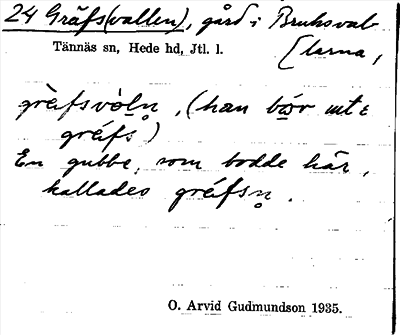 24 Gräfs(vallen), gård i Bruksval-
[larna,
Tännäs sn, Hede hd, Jtl. l.
grèfsvòln̥, (han bor int e
gréfs)
En gubbe, som bodde här,
kallades gréfsn̥.
O. Arvid Gudmundson 1935.